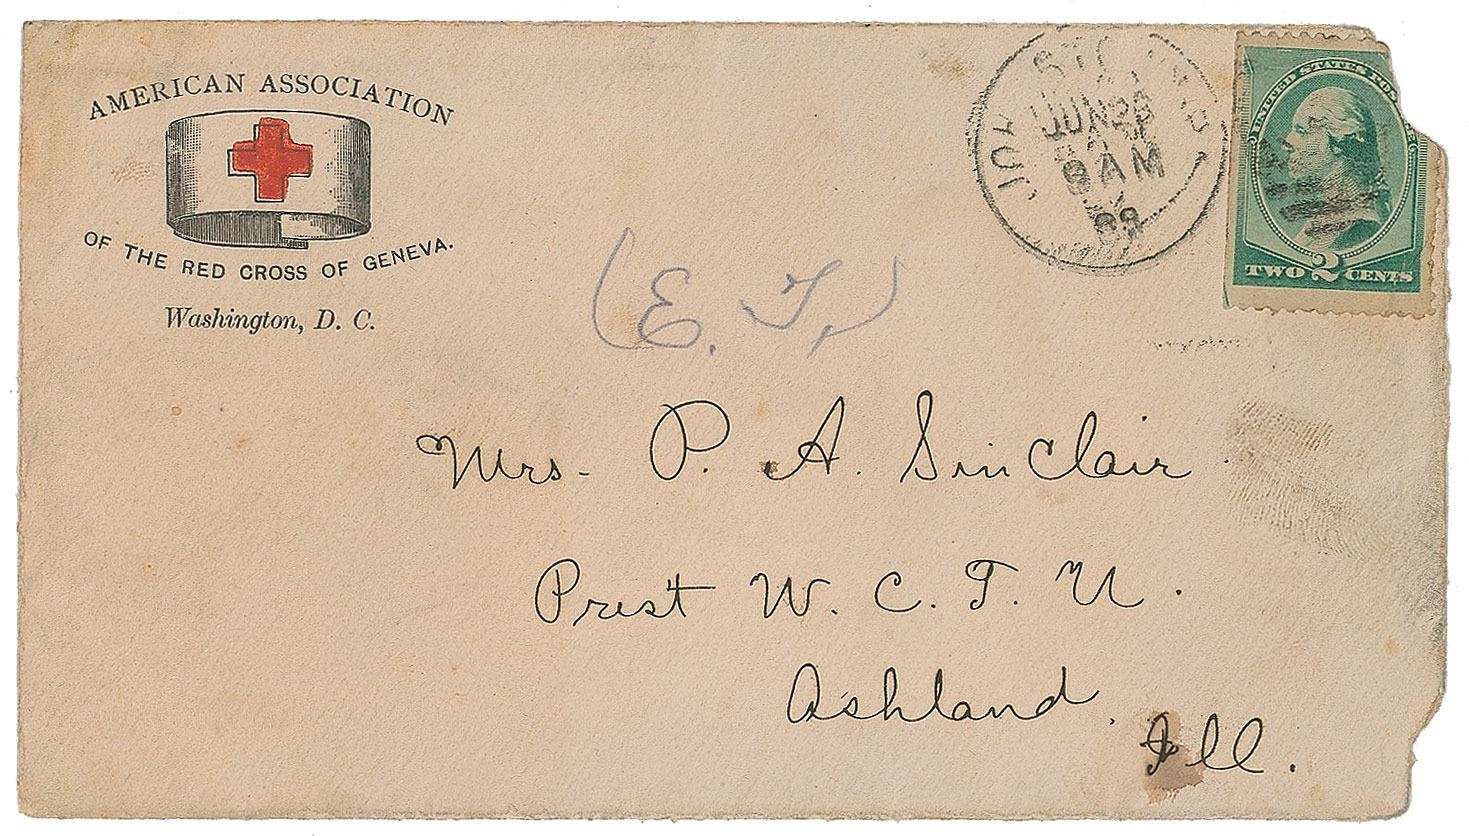 AMERICAN ASSOCIATION
OF THE RED CROSS OF GENEVA.
Washington, D. C.
JUN 28
9 AM
89
UNITED STATES POS
TWO 2 CENTS
(E. T.)
Mrs- P. A. Sinclair
Prest W. C. T. U.
Ashland, Ill.